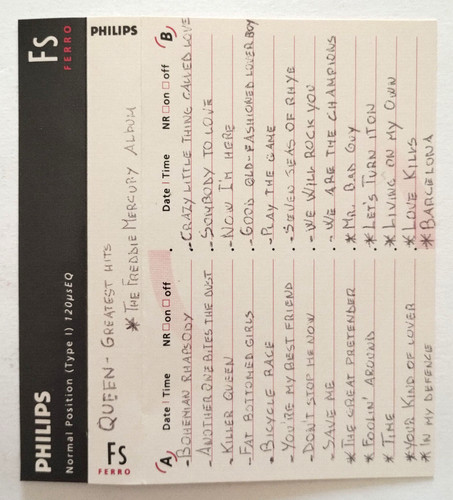 PHILIPS
FS
Normal Position (Type I) 120µsEQ
FERRO
FS
FERRO
QUEEN - GREATEST HITS
PHILIPS
* THE FREDDIE MERCURY ALBUM
A Date | Time NR □ on □ off
B Date | Time NR □ on □ off
- BOHEMIAN RHAPSODY
- ANOTHER ONE BITES THE DUST
- KILLER QUEEN
- FAT BOTTOMED GIRLS
- BICYCLE RACE
- YOU'RE MY BEST FRIEND
- DON'T STOP ME NOW
- SAVE ME
* THE GREAT PRETENDER
* FOOLIN' AROUND
* TIME
* YOUR KIND OF LOVER
* IN MY DEFENCE
- CRAZY LITTLE THING CALLED LOVE
- SOMBODY TO LOVE
- NOW I'M HERE
- GOOD OLD-FASHIONED LOVER BOY
- PLAY THE GAME
- SEVEN SEAS OF RHYE
- WE WILL ROCK YOU
- WE ARE THE CHAMPIONS
* MR. BAD GUY
* LET'S TURN IT ON
* LIVING ON MY OWN
* LOVE KILLS
* BARCELONA